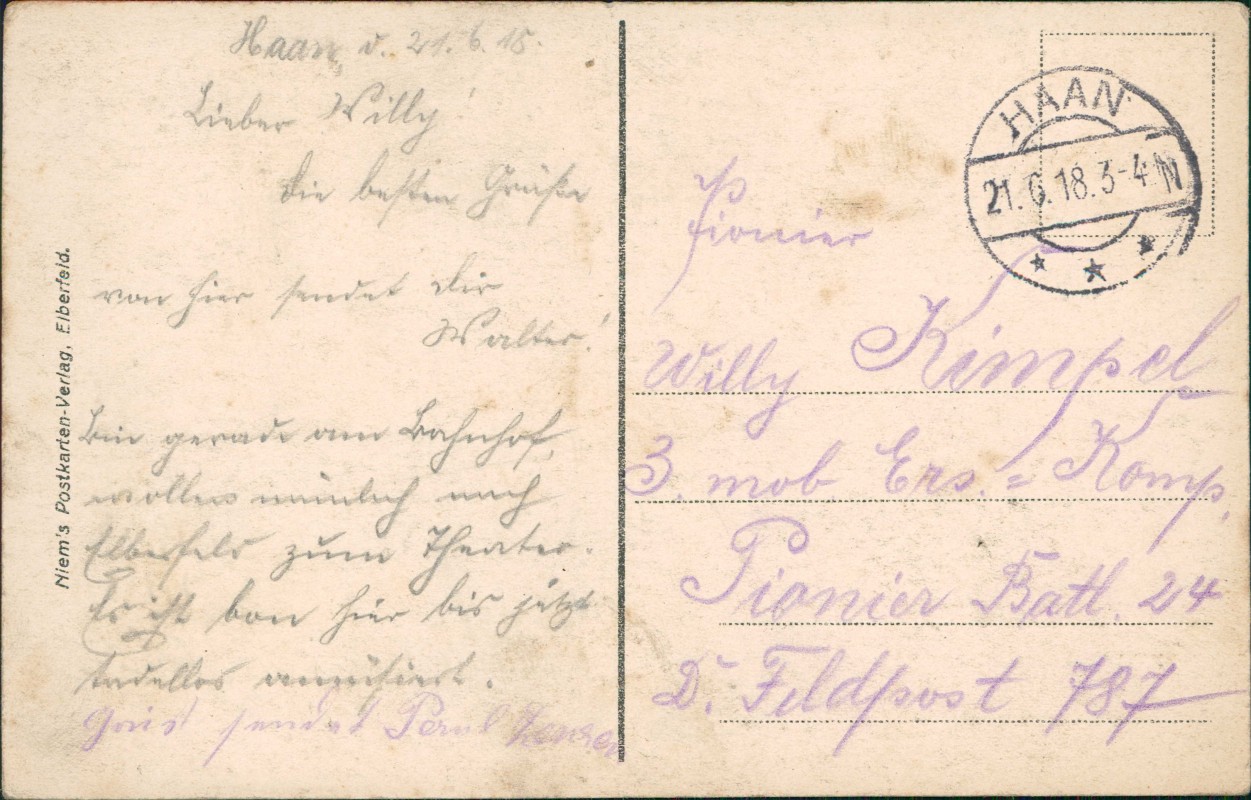 Haan, d. 21.6.18.
Lieber Willy!
die besten Grüße
von hier sendet Dir
Walter!
Bin gerade am Bahnhof,
wollen nämlich nach
Elberfeld zum Theater.
Es ist von hier bis jetzt
tadellos amüsiert.
Gruß sendet
Niem's Postkarten-Verlag, Elberfeld.
HAAN
21.6.18.3-4 N
Pionier
Willy Kimpel
3. mob. Ers. = Komp.
Pionier Batl. 24
D. Feldpost 787